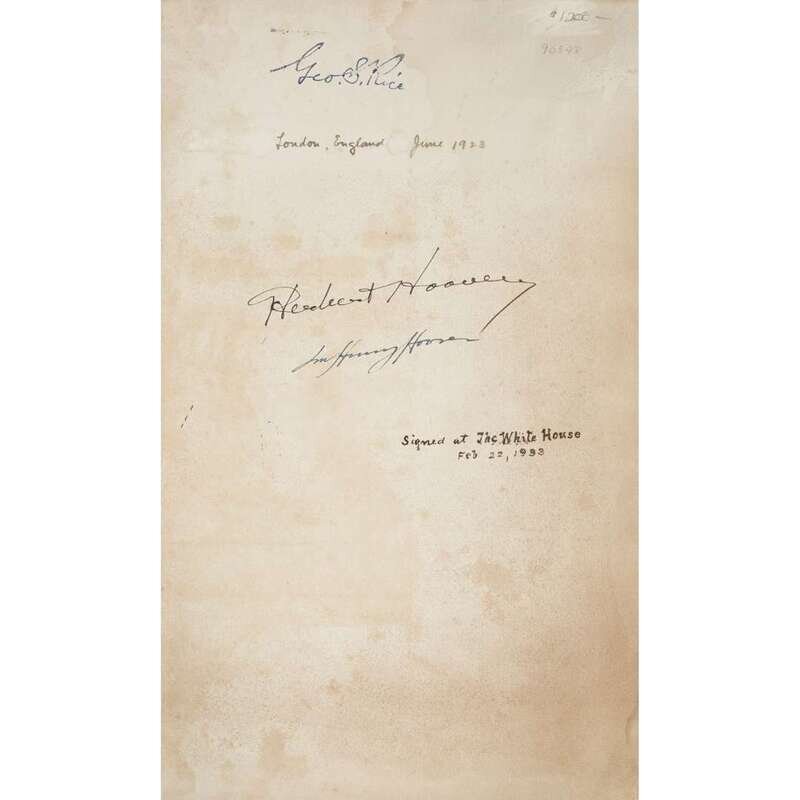 $1200-
90548
Geo. S. Rice
London, England June 1923
Herbert Hoover
Lou Henry Hoover
Signed at The White House
Feb 22, 1933